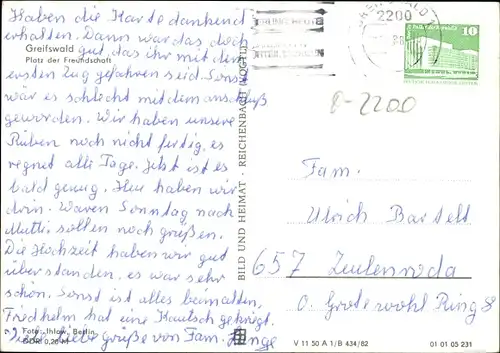 Haben die Karte dankend
erhalten. Dann war das doch
Greifswald
gut, das ihr mit dem
Platz der Freundschaft
ersten Zug gefahren seid. Sonst
wär es schlecht mit dem anschluß
geworden. Wir haben unsere
Rüben noch nicht fertig, es
regnet alle Tage. Jetzt ist es
bald genug. Heu haben wir
drin. Waren Sonntag nach
Mutti sollen noch grüßen.
Die Hochzeit haben wir gut
überstanden. es war sehr
schön. Sonst ist alles beim alten,
Friedhelm hat eine Kautsch gekriegt.
Foto: Ihlow, Berlin
liebe grüße von Fam.
DDR 0,20 M
BILD UND HEIMAT · REICHENBACH (VOGTL)
2200
GREIFSWALD 1
10
0-2200
Fam.
Ulrich Bartelt
657 Zeulenroda
O. Grotewohl Ring 8
V 11 50 A 1/B 434/82
01 01 05 231